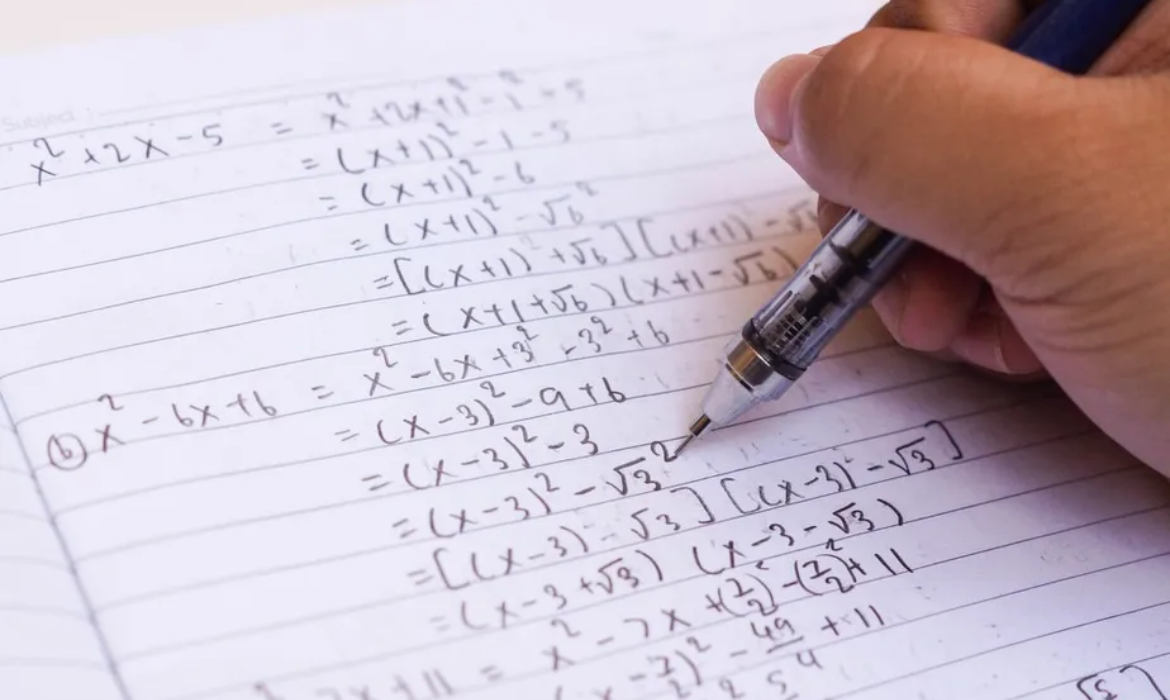 Subject
x² + 2x - 5 = x² + 2x + 1² - 1² - 5
= (x+1)² - 1 - 5
= (x+1)² - 6
= (x+1)² - √6²
= [(x+1) + √6] [(x+1) - √6
= (x+1+√6) (x+1-√6)
(b) x² - 6x + 6 = x² - 6x + 3² - 3² + 6
= (x-3)² - 9 + 6
= (x-3)² - 3
= (x-3)² - √3²
= [(x-3) - √3] [(x-3) - √3]
= (x-3+√3) (x-3-√3)
7x + 11 = x² - 7x + (7/2)² - (7/2)² + 11
(x - 7/2)² - 49/4 + 11
5